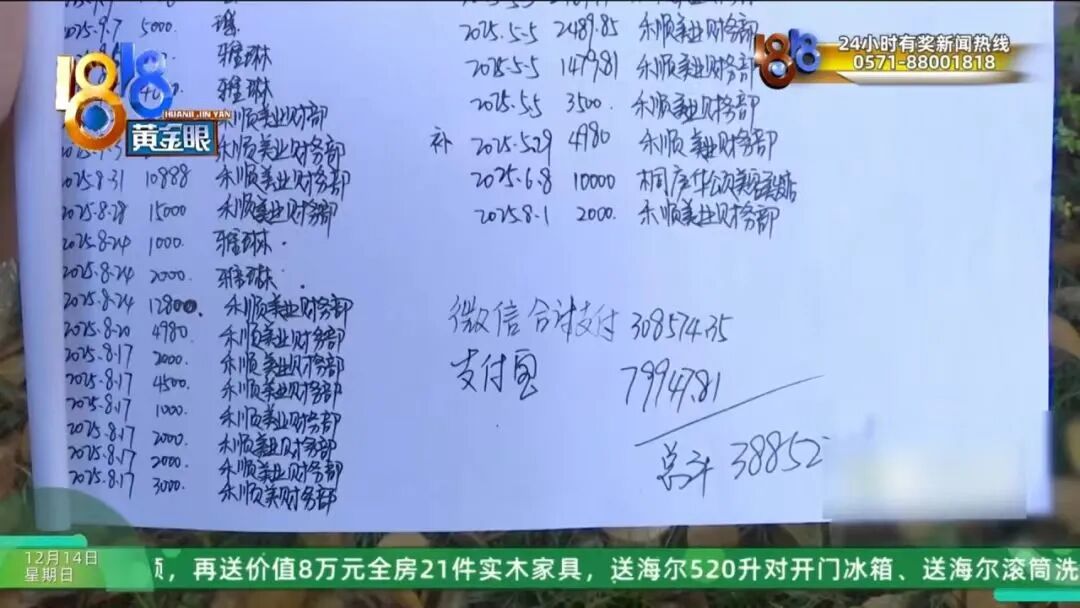 2025.9.7 5000
雅琳
雅琳
禾顺美业财务部
禾顺美业财务部
2025.8.31 10888 禾顺美业财务部
2025.8.28 15000 禾顺美业财务部
2025.8.24 1000. 雅琳.
2025.8.24 2000. 雅琳.
2025.8.24 12800. 禾顺美业财务部
2025.8.20 4980. 禾顺美业财务部
2025.8.17 2000. 禾顺美业财务部
2025.8.17 4500. 禾顺美业财务部
2025.8.17 1000. 禾顺美业财务部
2025.8.17 2000. 禾顺美业财务部
2025.8.17 2000. 禾顺美业财务部
2025.8.17 3000. 禾顺美财务部
2025.5.5 2489.85 禾顺美业财务部
2025.5.5 1479.81 禾顺美业财务部
2025.5.5 3500. 禾顺美业财务部
补 2025.5.29 4980 禾顺美业财务部
2025.6.8 10000 桐庐华颂美容
2025.8.1 2000. 禾顺美业财务部
微信合计支付 308574.35
支付宝 79947.81
总计 38852
1818
HUANG JIN YAN
黄金眼
1818
24小时有奖新闻热线
0571-88001818
12月14日
星期日
,再送价值8万元全房21件实木家具，送海尔520升对开门冰箱、送海尔滚筒洗